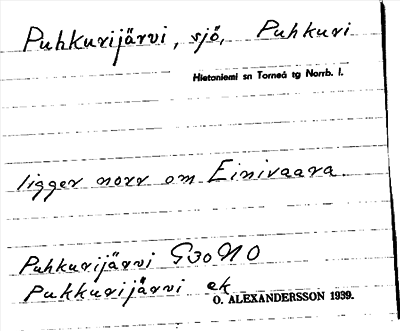 Puhkurijärvi, sjö, Puhkuri
Hietaniemi sn Torneå tg Norrb. l.
ligger norr om Einivaara.
Puhkurijärvi G30NO
Pukkurijärvi ek
O. ALEXANDERSSON 1939.